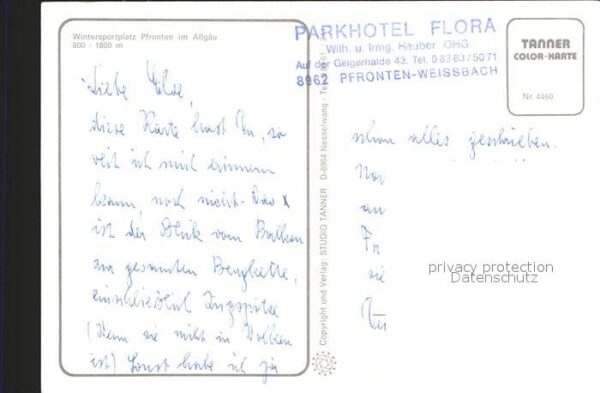 Wintersportplatz Pfronten im Allgäu
800 - 1800 m
PARKHOTEL FLORA
Wilh. u. Irmg. Hauber OHG
Auf der Geigerhalde 43, Tel. 0 83 63 / 50 71
8962 PFRONTEN-WEISSBACH
TANNER
COLOR-KARTE
Nr. 4460
Liebe Else,
diese Karte hast Du, so
weit ich mich erinnern
kann, noch nicht. Das x
ist der Blick vom Balkon
zur gesamten Bergkette,
einschließlich Zugspitze
(Wenn sie nicht in Wolken
ist) Sonst habe ich ja
Copyright und Verlag: STUDIO TANNER D-8964 Nesselwang
schon alles geschrieben.
an
Fr
privacy protection
Datenschutz